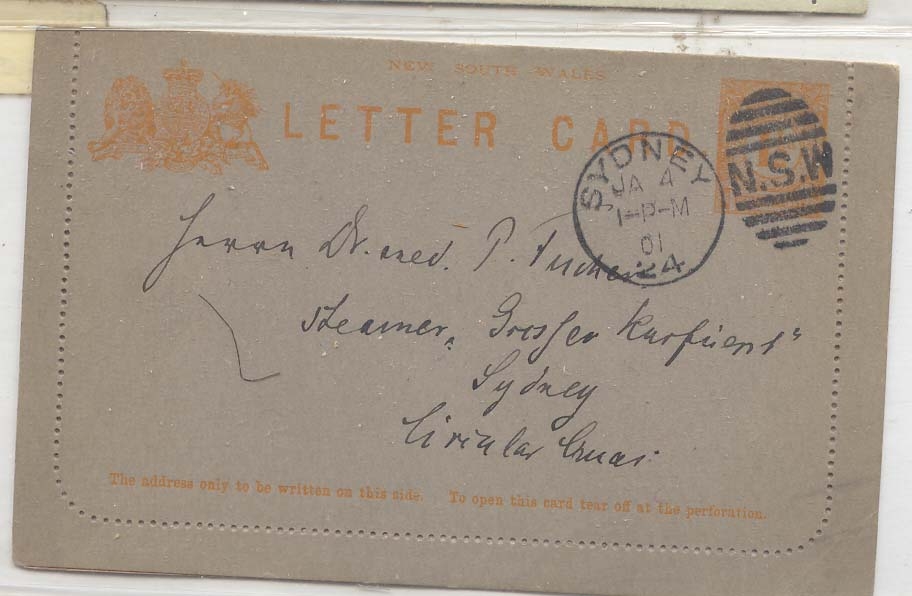 NEW SOUTH WALES
LETTER CARD
SYDNEY
JA 4
1-P-M
01
24
N.S.W
Herrn Dr. med. P.
Steamer „Grosser Kurfuerst“
Sydney
Circular Quai
The address only to be written on this side. To open this card tear off at the perforation.